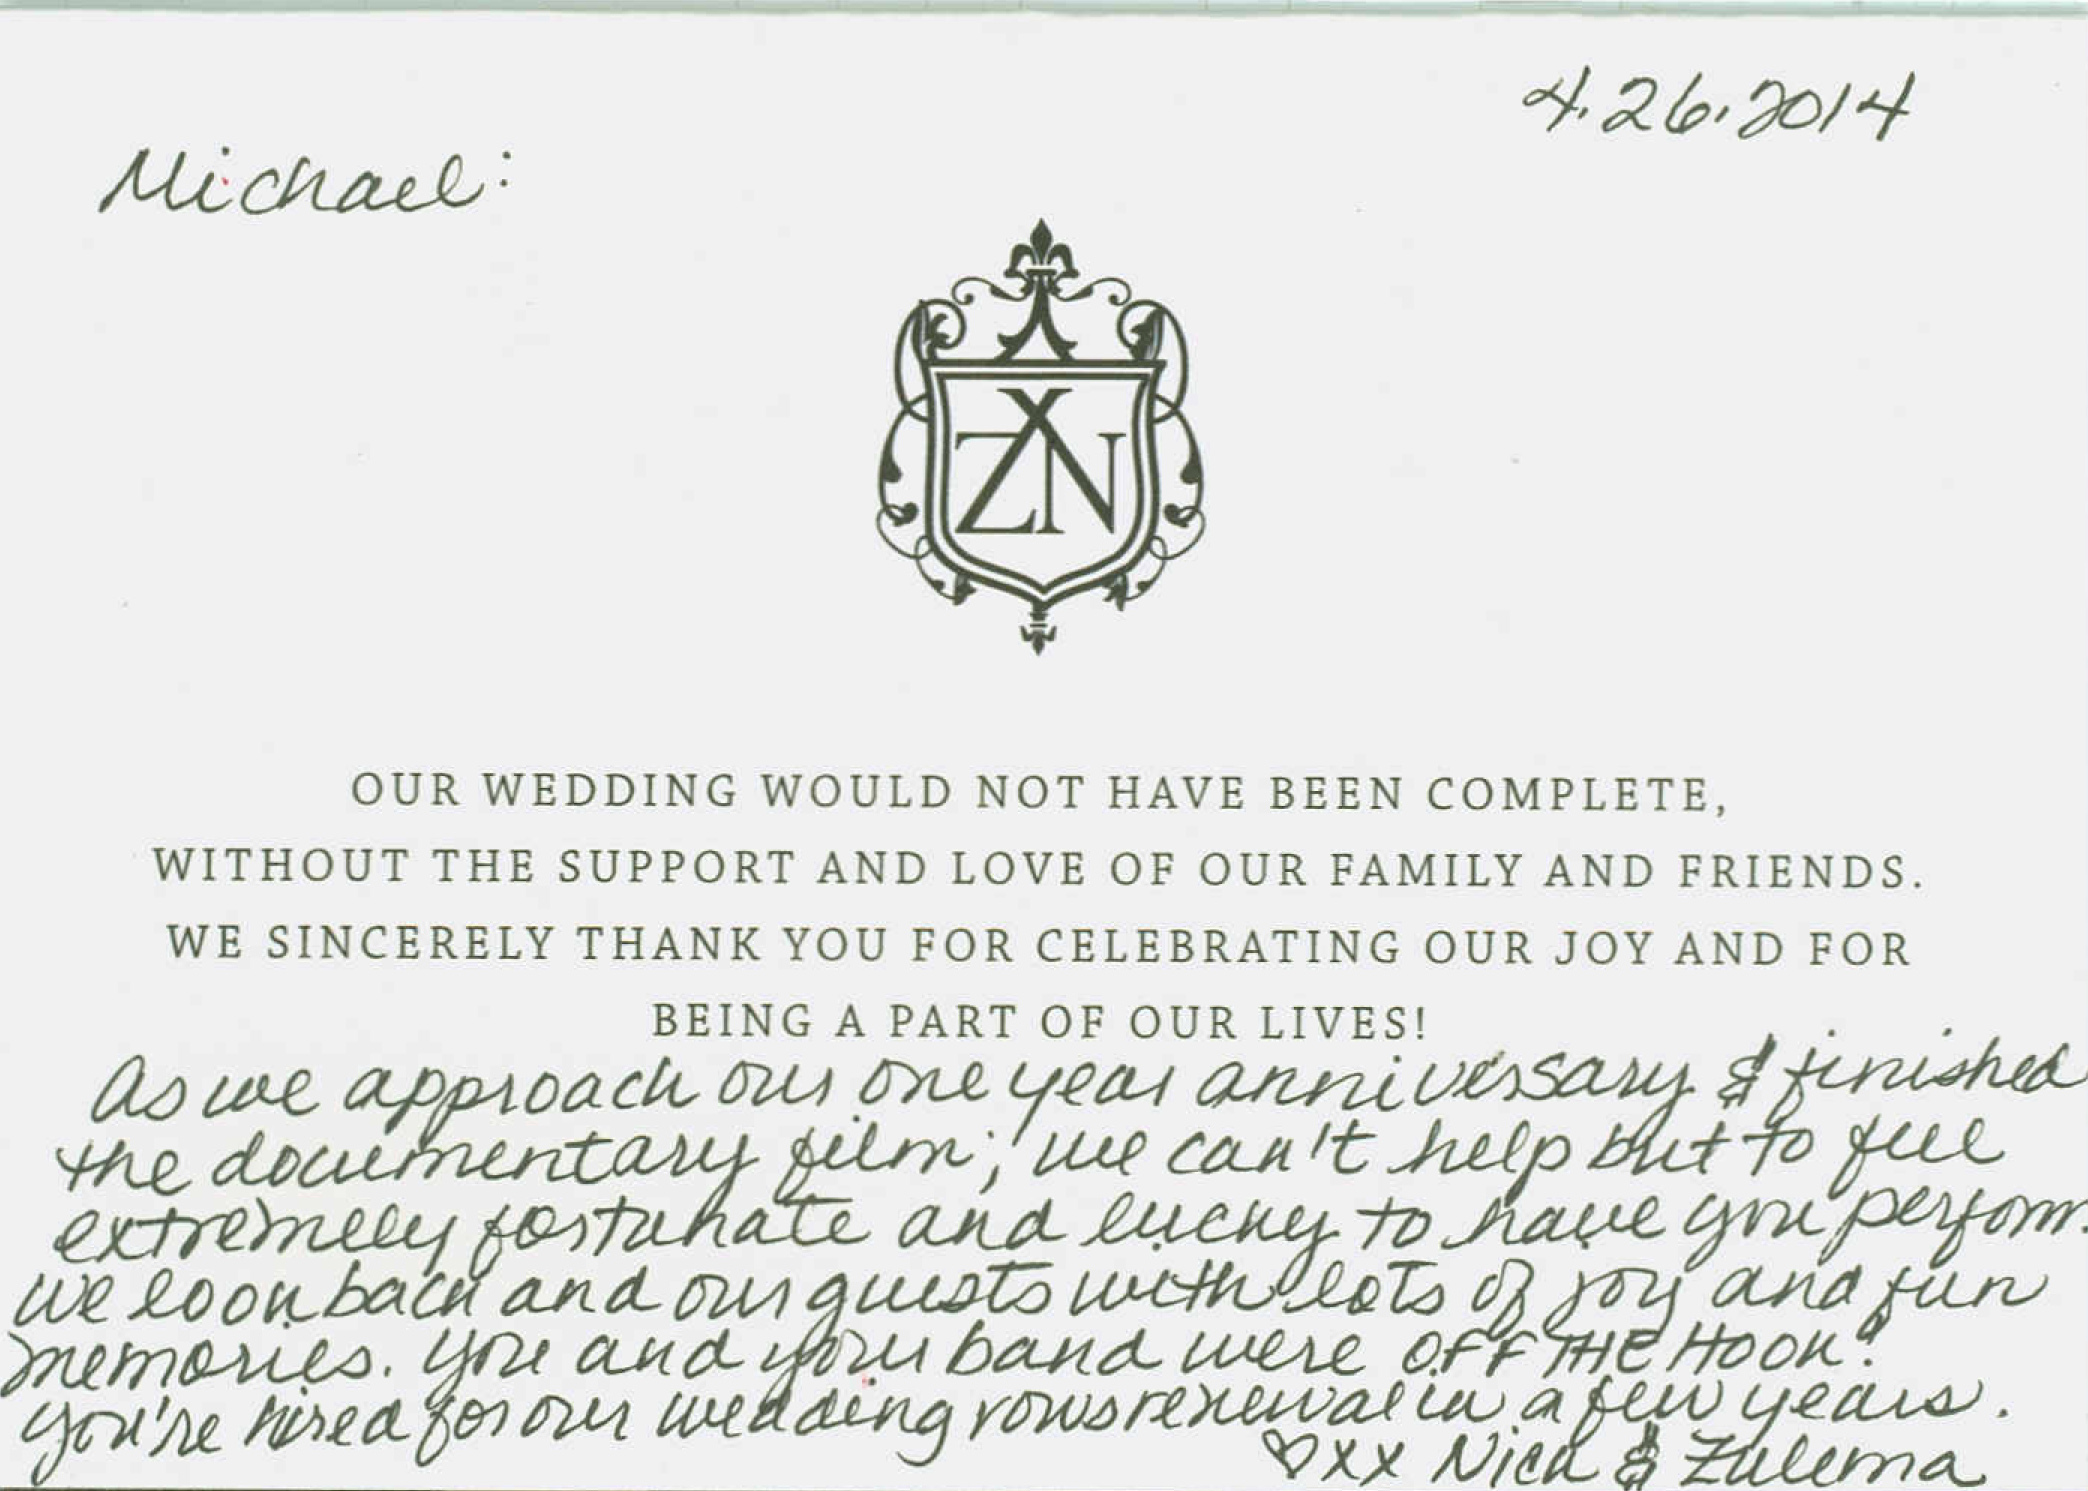 4.26.2014
Michael:
ZN
OUR WEDDING WOULD NOT HAVE BEEN COMPLETE,
WITHOUT THE SUPPORT AND LOVE OF OUR FAMILY AND FRIENDS.
WE SINCERELY THANK YOU FOR CELEBRATING OUR JOY AND FOR
BEING A PART OF OUR LIVES!
As we approach our one year anniversary & finished
the documentary film; we can't help but to feel
extremely fortunate and lucky to have you perform.
We look back and our guests with lots of joy and fun
memories. You and your band were OFF THE HOOK!
You're hired for our wedding vows renewal in a few years.
♡xx Nick & Zulema